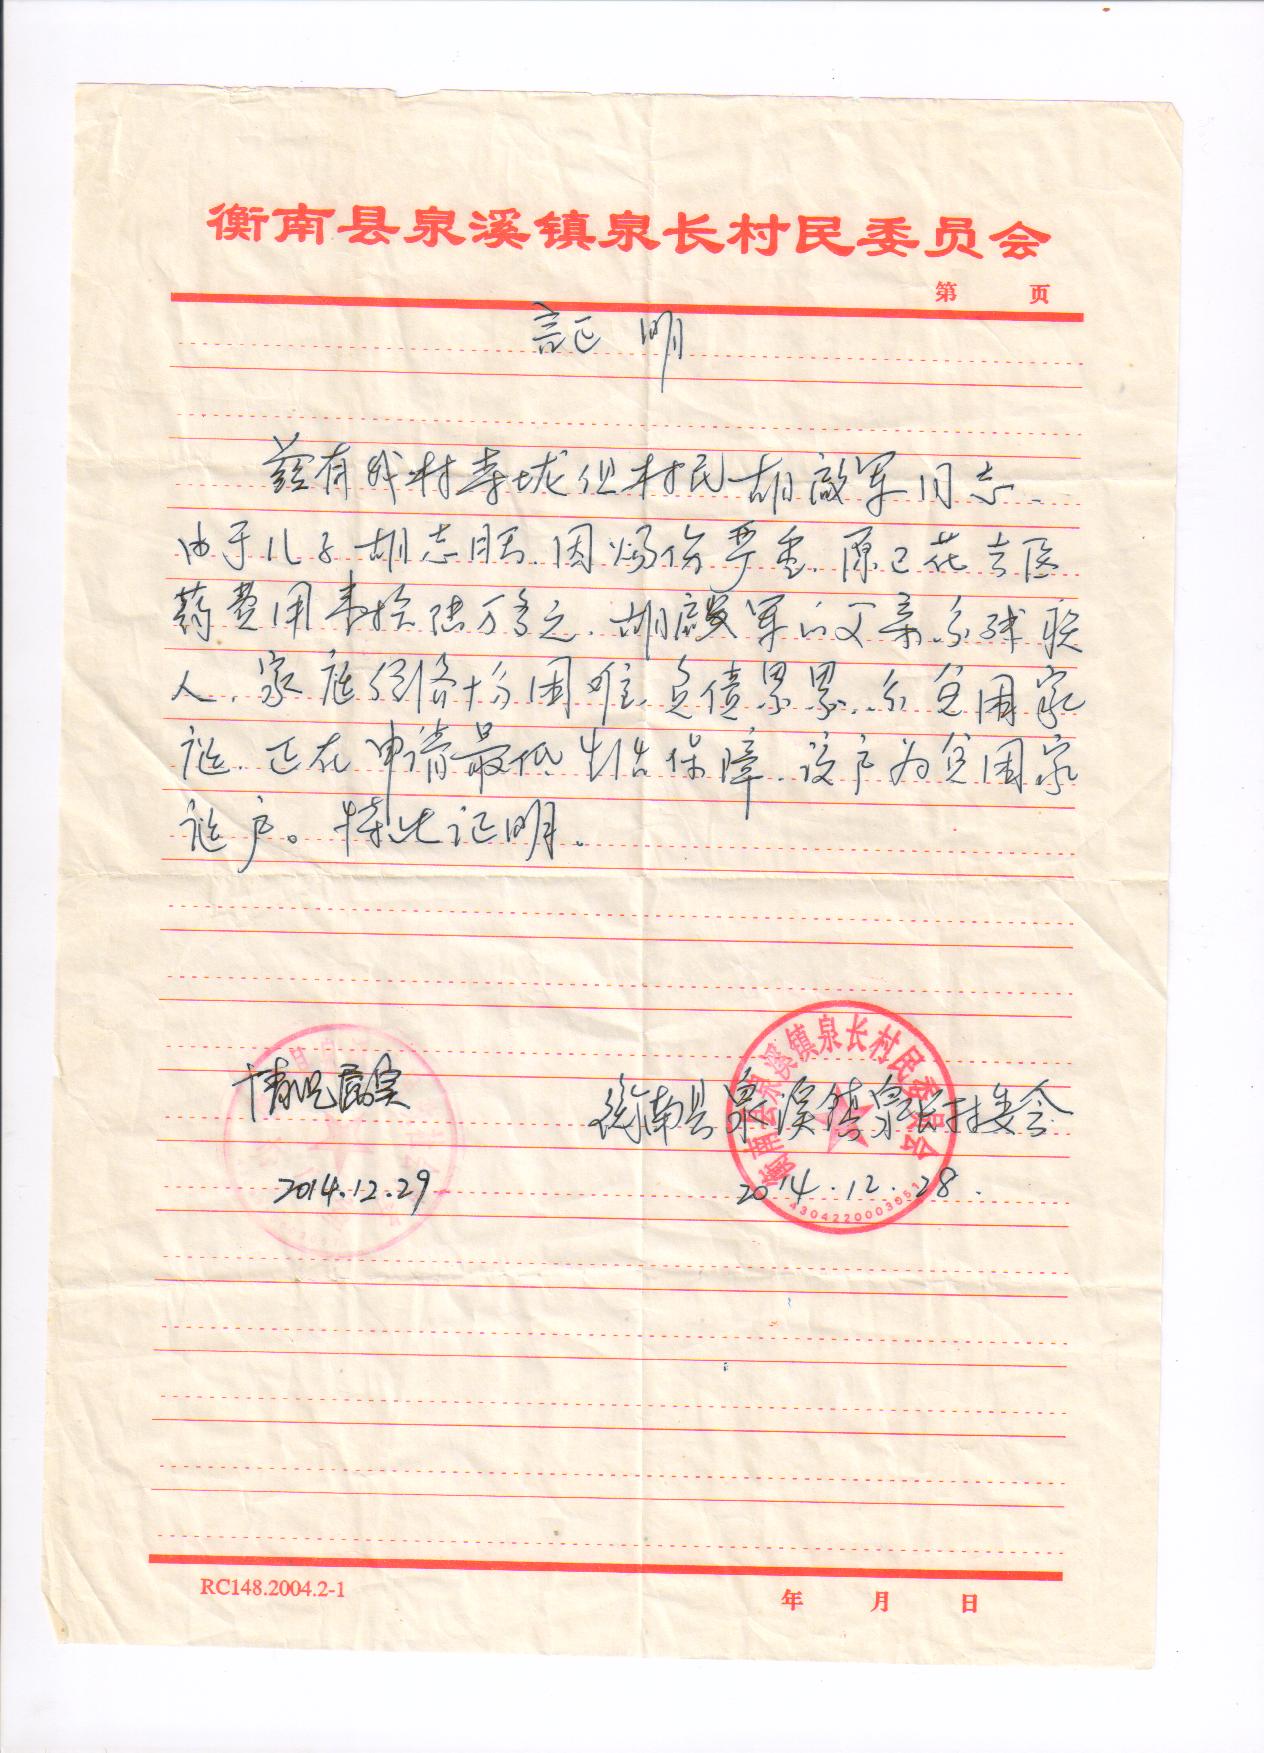 衡南县泉溪镇泉长村民委员会
第 页
証 明
兹有我村李垅组村民胡啟军同志、
由于儿子胡志 、因烫伤严重、原已花去医
药费用 拾陆万多元、胡啟军的父亲系残联
人、家庭经济十分困难、负债累累、系贫困家
庭、正在申请最低生活保障、该户为贫困家
庭户。特此证明。
情况属实
衡南县泉溪镇泉长村委会
2014.12.29
2014.12.28.
衡南县泉溪镇泉长村民委员会
4304220003951
RC148.2004.2-1
年 月 日